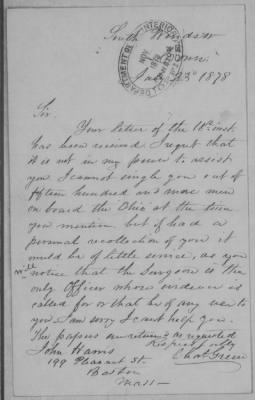 South Windsor
Conn.
23 1878
Sir.
Your letter of the 18th inst.
has been received I regret that
it is not in my power to assist
you I cannot single you out of
fifteen hundred and more men
on board the Ohio at the time
you mention but if I had a
personal recollection of you it
would be of little service, as you
will notice that the Surgeon is the
only Officer whose evidence is
called for or that be of any use to
you I am sorry I cant help you.
The papers are returned as requested
Respectfully
John Harris
Chas Green
199 Pleasant St.
Boston
Mass—